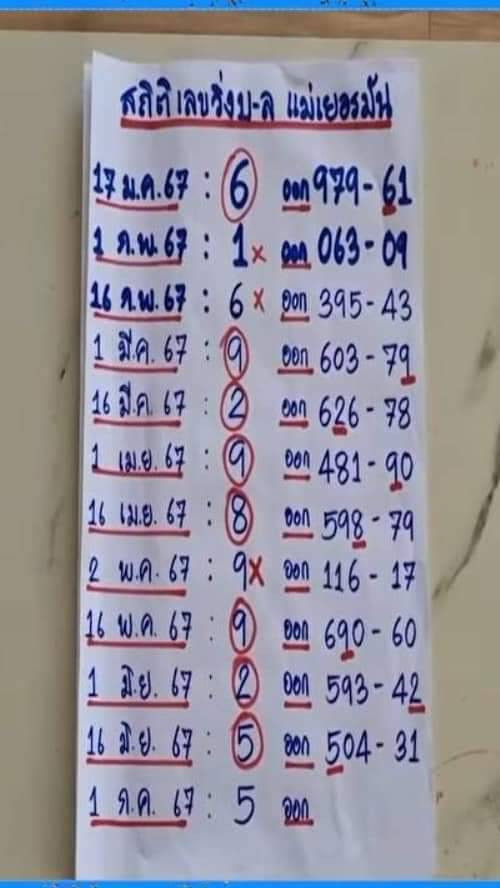 สถิติเลขวิ่งบ-ล แม่เยอรมัน
17 ม.ค.67 : 6 ออก 979-61
1 ก.พ.67 : 1 x ออก 063-09
16 ก.พ.67 : 6 x ออก 395-43
1 มี.ค. 67 : 9 ออก 603-79
16 มี.ค. 67 : 2 ออก 626-78
1 เม.ย. 67 : 9 ออก 481-90
16 เม.ย. 67 : 8 ออก 598-79
2 พ.ค. 67 : 9 x ออก 116-17
16 พ.ค. 67 : 9 ออก 690-60
1 มิ.ย. 67 : 2 ออก 593-42
16 มิ.ย. 67 : 5 ออก 504-31
1 ก.ค. 67 : 5 ออก